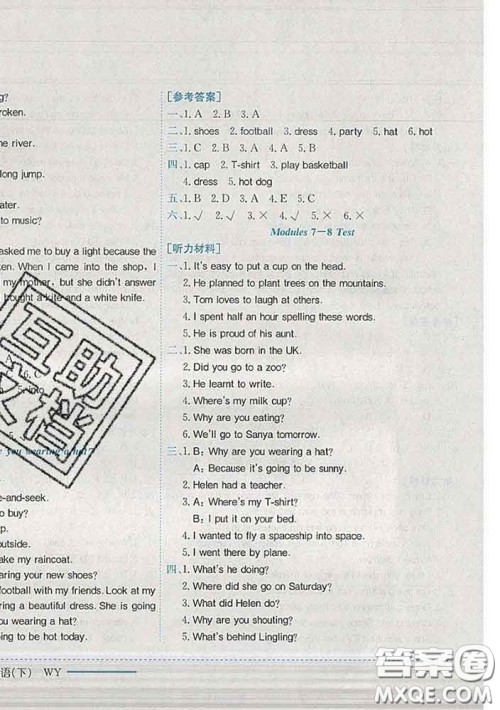 g?
roken.
he river.
long jump.
ater.
to music?
asked me to buy a light because the
ken. When I came into the shop, I
my mother, but she didn't answer
bought a kite and a white knife.
5. into
e you wearing a hat?
e-and-seek.
outside.
ake my raincoat.
aring your new shoes?
tball with my friends. Look at my
ring a beautiful dress. She is going
you wearing a hat?
ing to be hot today.
语(下) WY
[参考答案]
一、1. A 2. B 3. A
二、1. shoes 2. football 3. dress 4. party 5. hat 6. hot
三、1. C 2. B 3. A 4. B 5. A
四、1. cap 2. T-shirt 3. play basketball
4. dress 5. hot dog
五、1. B 2. D 3. A 4. E 5. C
六、1. √ 2. √ 3. × 4. √ 5. × 6. ×
Modules 7—8 Test
[听力材料]
一、1. It's easy to put a cup on the head.
2. He planned to plant trees on the mountains.
3. Tom loves to laugh at others.
4. I spent half an hour spelling these words.
5. He is proud of his aunt.
二、1. She was born in the UK.
2. Did you go to a zoo?
3. He learnt to write.
4. Where's my milk cup?
5. Why are you eating?
6. We'll go to Sanya tomorrow.
三、1. B: Why are you wearing a hat?
A: Because it's going to be sunny.
2. Helen had a teacher.
3. A: Where's my T-shirt?
B: I put it on your bed.
4. I wanted to fly a spaceship into space.
5. I went there by plane.
四、1. What's he doing?
2. Where did she go on Saturday?
3. What did Helen do?
4. Why are you laughing?
5. What's behind Lingling?
互助
文档
答案圈
MXQE.COM